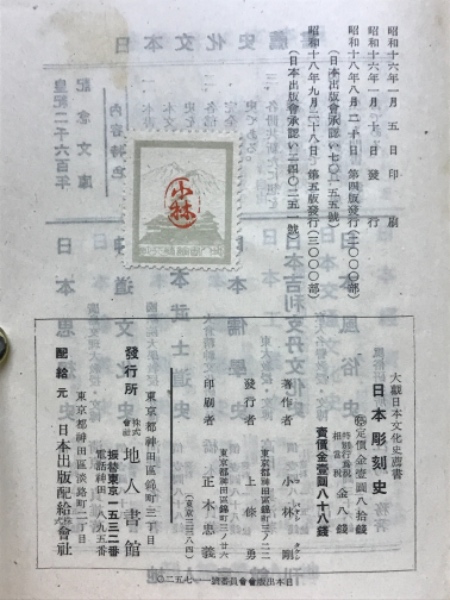 昭和十六年一月五日印刷
昭和十六年一月十日發行
昭和十八年八月二十日第四版發行(二〇〇〇部)
(日本出版會承認い七〇一五五號)
昭和十八年九月二十八日第五版發行(三〇〇〇部)
(日本出版會承認い二四〇二五一號)
小林
大觀日本文化史薦書
日本彫刻史
定價金壹圓八拾錢
特別行爲稅
相當額
金八錢
賣價金壹圓八十八錢
著作者 小林剛
東京都神田區錦町三ノ二二
發行者 上條勇
東京都神田區錦町三ノ二六
印刷者 正木忠義
(東京二三八四)
東京都神田區錦町三丁目
發行所 株式會社 地人書館
振替東京一五三二番
電話神田一八九五番
東京都神田區淡路町二丁目
配給元 日本出版配給株式會社
日本出版會會員番號一一七五二〇